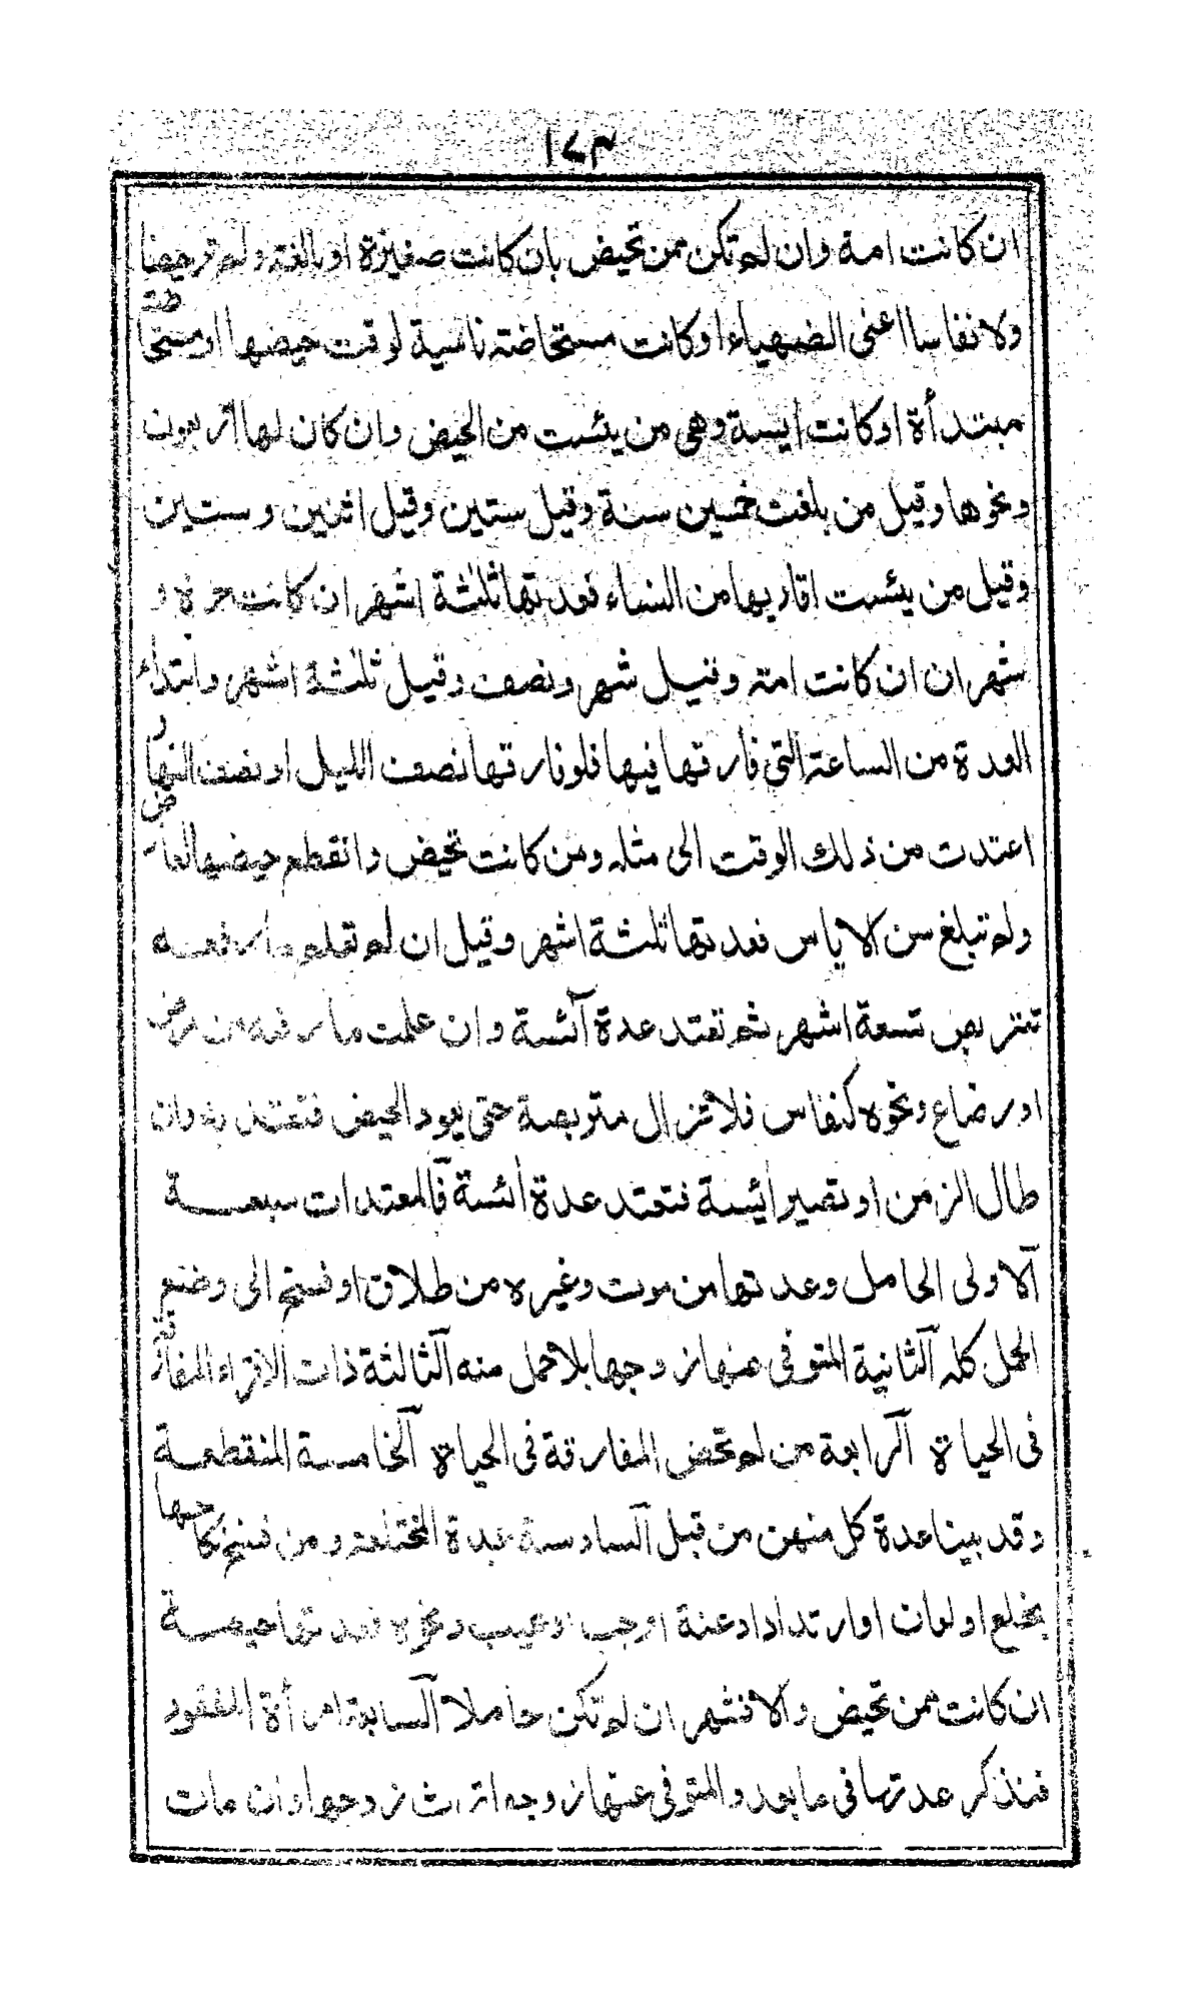 ١٧٣
ان كانت امة وان لم تكن ممن تحيض بان كانت صغيرة او بالغة ولم تر حيضا
ولا نفاسا اعنى الضهياء او كانت مستحاضة ناسية لوقت حيضها او مستحاضة
مبتدأة او كانت ايسة وهى من يئست من الحيض وان كان لها اربعون
ونحوها وقيل من بلغت خمسين سنة وقيل ستين وقيل اثنين وستين
وقيل من يئست اقاربها من النساء فعدتها ثلثة اشهر ان كانت حرة و
شهران ان كانت امة وقيل شهر ونصف وقيل ثلثة اشهر وابتداء
العدة من الساعة التى فارقها فيها فلو فارقها نصف الليل او نصف النهار
اعتدت من ذلك الوقت الى مثله ومن كانت تحيض وانقطع حيضها لعارض
ولم تبلغ سن الاياس فعدتها ثلثة اشهر وقيل ان لم تعلم ما رفعه
تتربص تسعة اشهر ثم تعتد عدة آئسة وان علمت ما رفعه من مرض
او رضاع ونحوه كنفاس فلا تزال متربصة حتى يعود الحيض فتعتد به وان
طال الزمن او تصير ائيسة فتعتد عدة ائسة فالمعتدات سبعة
الاولى الحامل وعدتها من موت وغيره من طلاق او فسخ الى وضع
الحمل كله الثانية المتوفى عنها زوجها بلا حمل منه الثالثة ذات الاقراء المفارقة
فى الحياة الرابعة من لم تحض المفارقة فى الحياة الخامسة المنقطعة
وقد بينا عدة كل منهن من قبل السادسة عدة المختلعة ومن فسخ نكاحها
بخلع او لعان او ارتداد او عنة او جب او عيب ونحوه فعدتها حيضة
ان كانت ممن تحيض والا فشهر ان لم تكن حاملا السابعة امرأة المفقود
فنذكر عدتها فى ما بعد والمتوفى عنها زوجها ترث زوجها وان مات